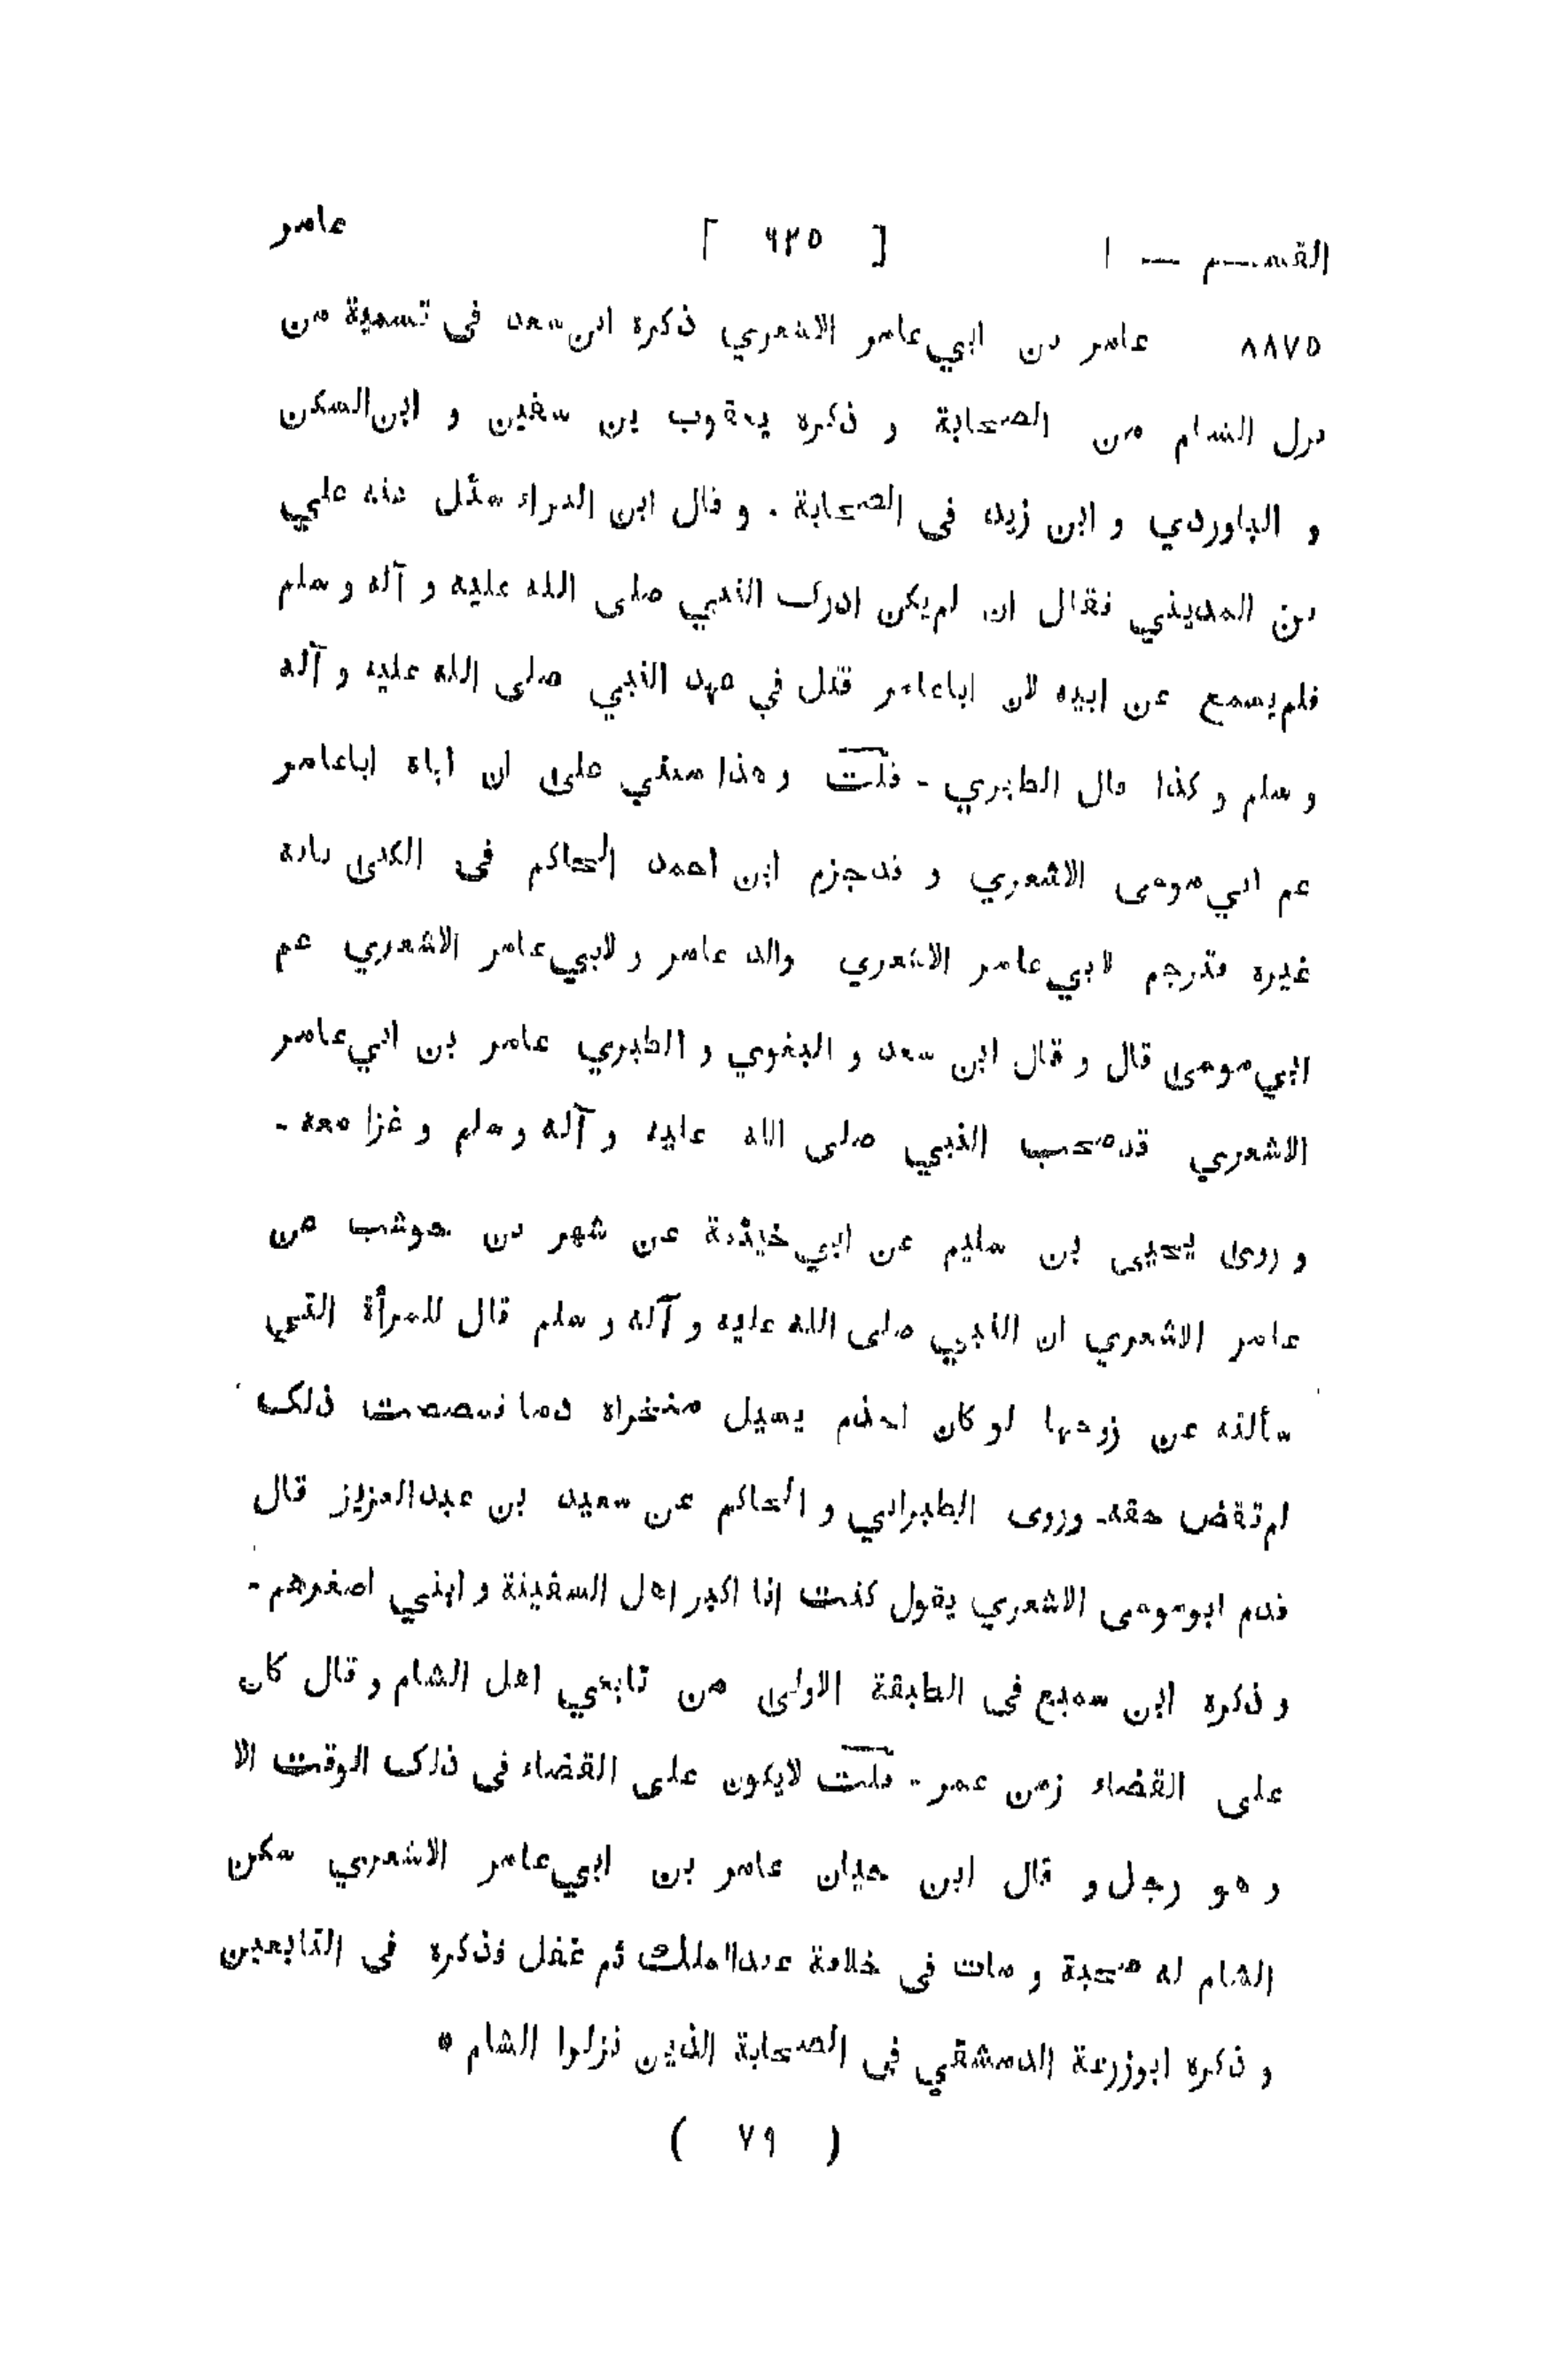 القسم — ١ [ ٩٢٥ ] عامر
٨٨٧٥ عامر بن ابي عامر الاشعري ذكره ابن سعد فى تسمية من
نزل الشام من الصحابة و ذكره يعقوب بن سفين و ابن السكن
و الباوردي و ابن زيد فى الصحابة . و قال ابن البراء سئل عنه علي
بن المديني فقال ان لم يكن ادرك النبي صلى الله عليه و آله و سلم
فلم يسمع عن ابيه لان اباعامر قتل في عهد النبي صلى الله عليه و آله
و سلم و كذا قال الطبري - قلت و هذا مبني على ان اباه اباعامر
عم ابي موسى الاشعري و قد جزم ابن احمد الحاكم فى الكنى بانه
غيره فترجم لابي عامر الاشعري والد عامر و لابي عامر الاشعري عم
ابي موسى قال و قال ابن سعد و البغوي و الطبري عامر بن ابي عامر
الاشعري قد صحب النبي صلى الله عليه و آله و سلم و غزا معه -
و روى يحيى بن سليم عن ابي خيثمة عن شهر بن حوشب عن
عامر الاشعري ان النبي صلى الله عليه و آله و سلم قال للمرأة التي
سألته عن زوجها لو كان يسيل منخراه دما ذلك
لم تقض حقه - وروى الطبراني و الحاكم عن سعيد بن عبدالعزيز قال
قدم ابوموسى الاشعري يقول كنت انا اكبر اهل السفينة و ابني اصغرهم -
و ذكره ابن سميع فى الطبقة الاولى من تابعي اهل الشام و قال كان
على القضاء زمن عمر - قلت لايكون على القضاء فى ذلك الوقت الا
و هو رجل و قال ابن حبان عامر بن ابي عامر الاشعري سكن
الشام له صحبة و مات فى خلافة عبدالملك ثم غفل فذكره فى التابعين
و ذكره ابوزرعة الدمشقي فى الصحابة الذين نزلوا الشام *
( ٧٩ )